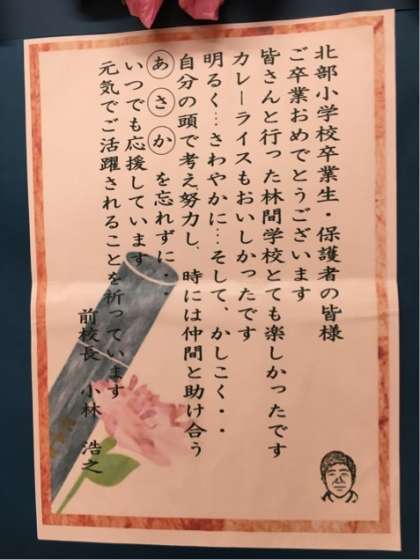 北部小学校卒業生・保護者の皆様
ご卒業おめでとうございます
皆さんと行った林間学校とても楽しかったです
カレーライスもおいしかったです
明るく…さわやかに…そして、かしこく・・
自分の頭で考え努力し、時には仲間と助け合う
あさかを忘れずに・・
いつでも応援しています
元気でご活躍されることを祈っています
前校長 小林 浩之